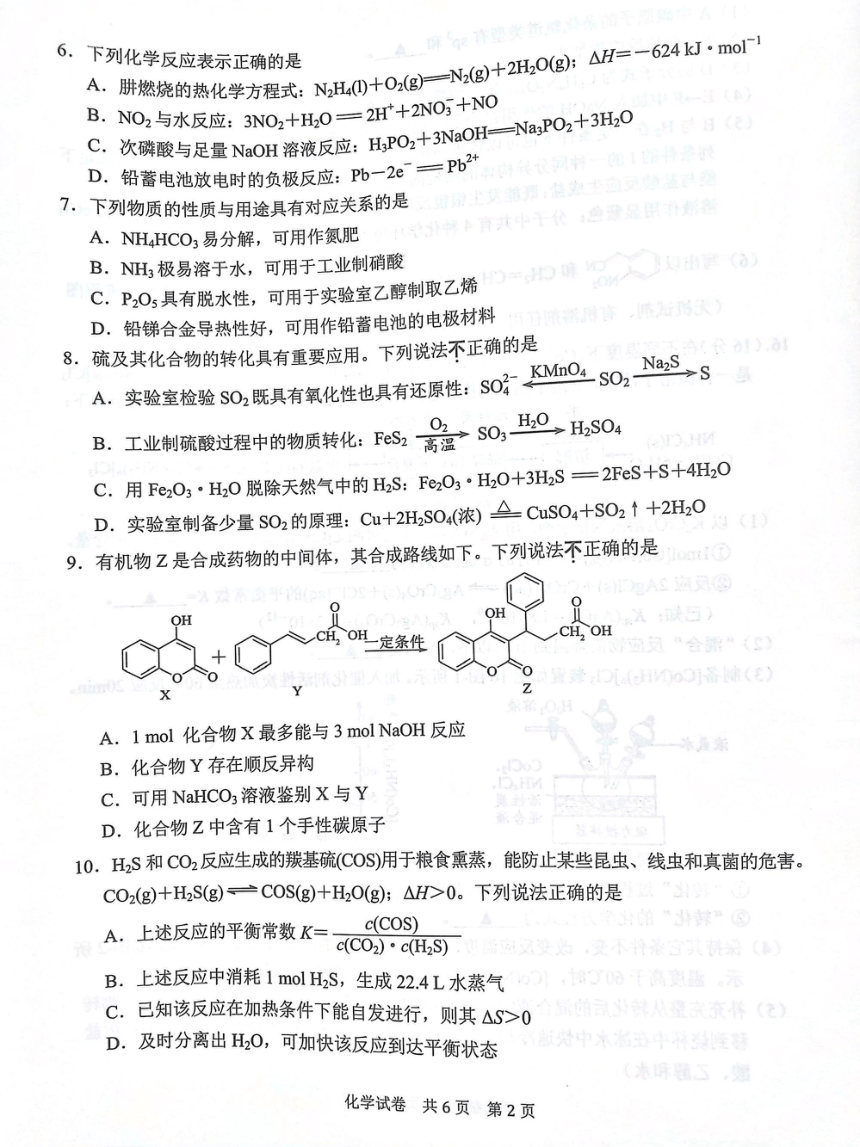 6．下列化学反应表示正确的是
A．肼燃烧的热化学方程式：N₂H₄(l)＋O₂(g)══N₂(g)＋2H₂O(g)；△H＝－624 kJ·mol⁻¹
B．NO₂与水反应：3NO₂＋H₂O══2H⁺＋2NO₃⁻＋NO
C．次磷酸与足量NaOH溶液反应：H₃PO₂＋3NaOH══Na₃PO₂＋3H₂O
D．铅蓄电池放电时的负极反应：Pb－2e⁻══Pb²⁺
7．下列物质的性质与用途具有对应关系的是
A．NH₄HCO₃易分解，可用作氮肥
B．NH₃极易溶于水，可用于工业制硝酸
C．P₂O₅具有脱水性，可用于实验室乙醇制取乙烯
D．铅锑合金导热性好，可用作铅蓄电池的电极材料
8．硫及其化合物的转化具有重要应用。下列说法不正确的是
A．实验室检验SO₂既具有氧化性也具有还原性：SO₄²⁻ ←KMnO₄— SO₂ —Na₂S→ S
B．工业制硫酸过程中的物质转化：FeS₂ —O₂ 高温→ SO₃ —H₂O→ H₂SO₄
C．用Fe₂O₃·H₂O脱除天然气中的H₂S：Fe₂O₃·H₂O＋3H₂S══2FeS＋S＋4H₂O
D．实验室制备少量SO₂的原理：Cu＋2H₂SO₄(浓) △══ CuSO₄＋SO₂↑＋2H₂O
9．有机物Z是合成药物的中间体，其合成路线如下。下列说法不正确的是
OH O O X
＋
O CH₂ OH Y
一定条件
OH O O O CH₂ OH Z
A．1 mol 化合物X最多能与3 mol NaOH反应
B．化合物Y存在顺反异构
C．可用NaHCO₃溶液鉴别X与Y
D．化合物Z中含有1个手性碳原子
10．H₂S和CO₂反应生成的羰基硫(COS)用于粮食熏蒸，能防止某些昆虫、线虫和真菌的危害。
CO₂(g)＋H₂S(g)⇌COS(g)＋H₂O(g)；△H＞0。下列说法正确的是
A．上述反应的平衡常数K＝c(COS)/c(CO₂)·c(H₂S)
B．上述反应中消耗1 mol H₂S，生成22.4 L水蒸气
C．已知该反应在加热条件下能自发进行，则其△S＞0
D．及时分离出H₂O，可加快该反应到达平衡状态
化学试卷 共6页 第2页